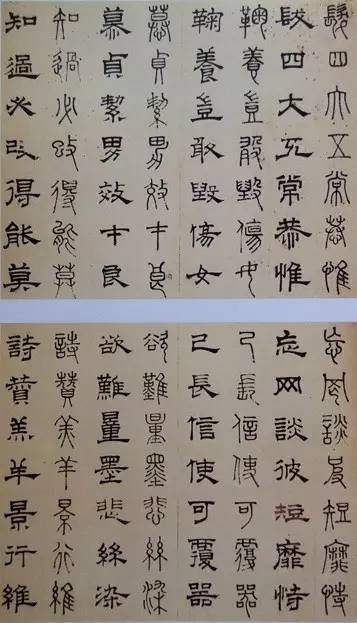 髮四大五常恭惟
髮四大五常恭惟
鞠養豈敢毀傷女
鞠養豈敢毀傷女
慕貞絜男效才良
慕貞絜男效才良
知過必改得能莫
知過必改得能莫
忘罔談彼短靡恃
忘网談彼短靡恃
己長信使可覆器
己長信使可覆器
欲難量墨悲絲染
欲難量墨悲絲染
詩贊羔羊景行維
詩贊羔羊景行維